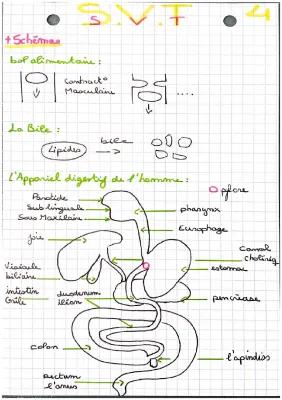 S.V.T
4
+ Schémas
bol alimentaire :
Contract°
Musculaire
....
La Bile :
Lipides
bile
L'Appareil digestif de l'homme :
pylore
Parotide
Sub linguale
Sous Maxilaire
pharynx
Eusophage
foie
Canal
estomac
Vésicule
biliaire
intestin
Grêle
duodenum
iléon
pencréase
Colon
l'apindiss
Rectum
l'anus